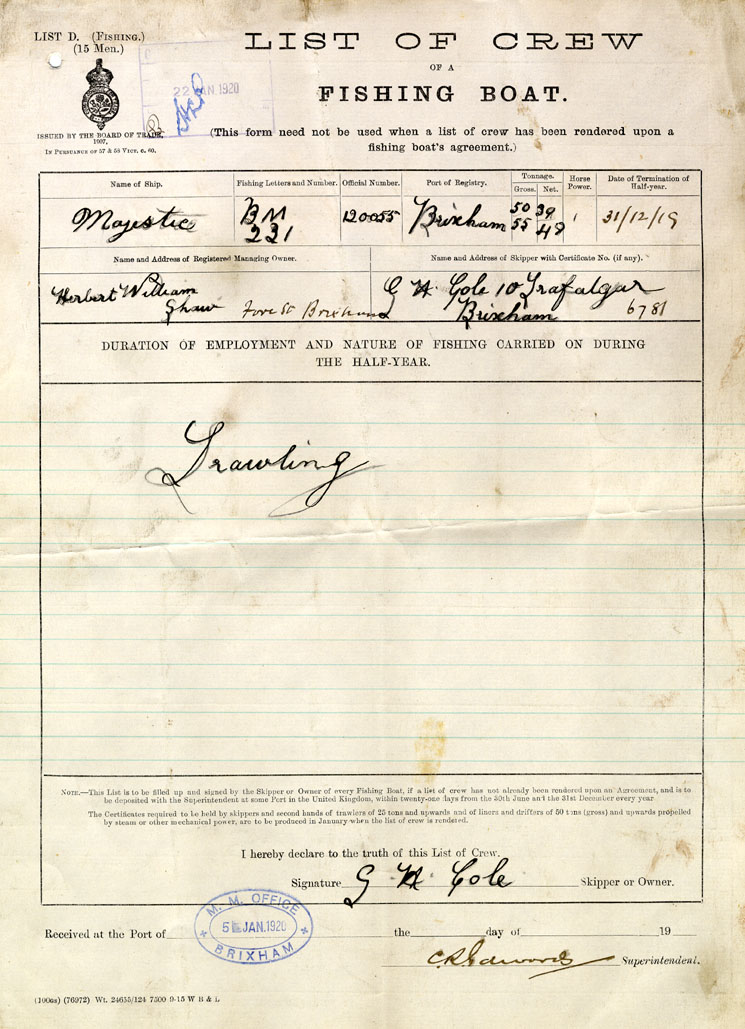 LIST D. (FISHING.)
(15 Men.)
LIST OF CREW
OF A
FISHING BOAT.
22 JAN 1920
ISSUED BY THE BOARD OF TRADE,
1907.
IN PURSUANCE OF 57 & 58 VICT. C. 60.
(This form need not be used when a list of crew has been rendered upon a
fishing boat's agreement.)
Name of Ship. Fishing Letters and Number. Official Number. Port of Registry. Tonnage. Gross. Net. Horse Power. Date of Termination of Half-year.
Majestic BM 120055 Brixham 50 39 31/12/19
221 55 48
Name and Address of Registered Managing Owner. Name and Address of Skipper with Certificate No. (if any).
Herbert William G H Cole 10 Trafalgar
Shaw Fore St Brixham Brixham 6781
DURATION OF EMPLOYMENT AND NATURE OF FISHING CARRIED ON DURING
THE HALF-YEAR.
Trawling
NOTE.—This List is to be filled up and signed by the Skipper or Owner of every Fishing Boat, if a list of crew has not already been rendered upon an Agreement, and is to
be deposited with the Superintendent at some Port in the United Kingdom, within twenty-one days from the 30th June and the 31st December every year
The Certificates required to be held by skippers and second hands of trawlers of 25 tons and upwards and of liners and drifters of 50 tons (gross) and upwards propelled
by steam or other mechanical power, are to be produced in January when the list of crew is rendered.
I hereby declare to the truth of this List of Crew.
Signature G H Cole Skipper or Owner.
M. M. OFFICE
5 JAN. 1920
BRIXHAM
Received at the Port of the day of 19
Edwards Superintendent.
(100ss) (76972) Wt. 24655/124 7500 9-15 W B & L